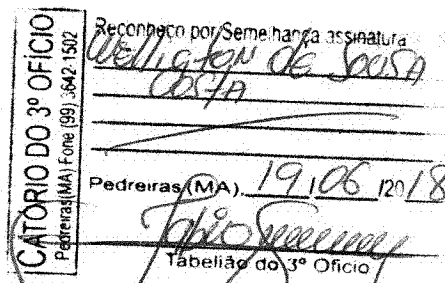 CATÓRIO DO 3º OFÍCIO
Pedreiras(MA) Fone (99) 3642-1502
Reconheço por Semelhança assinatura
Welligton de Sousa
Costa
Pedreiras (MA), 19 / 06 /2018
Tabelião do 3º Ofício